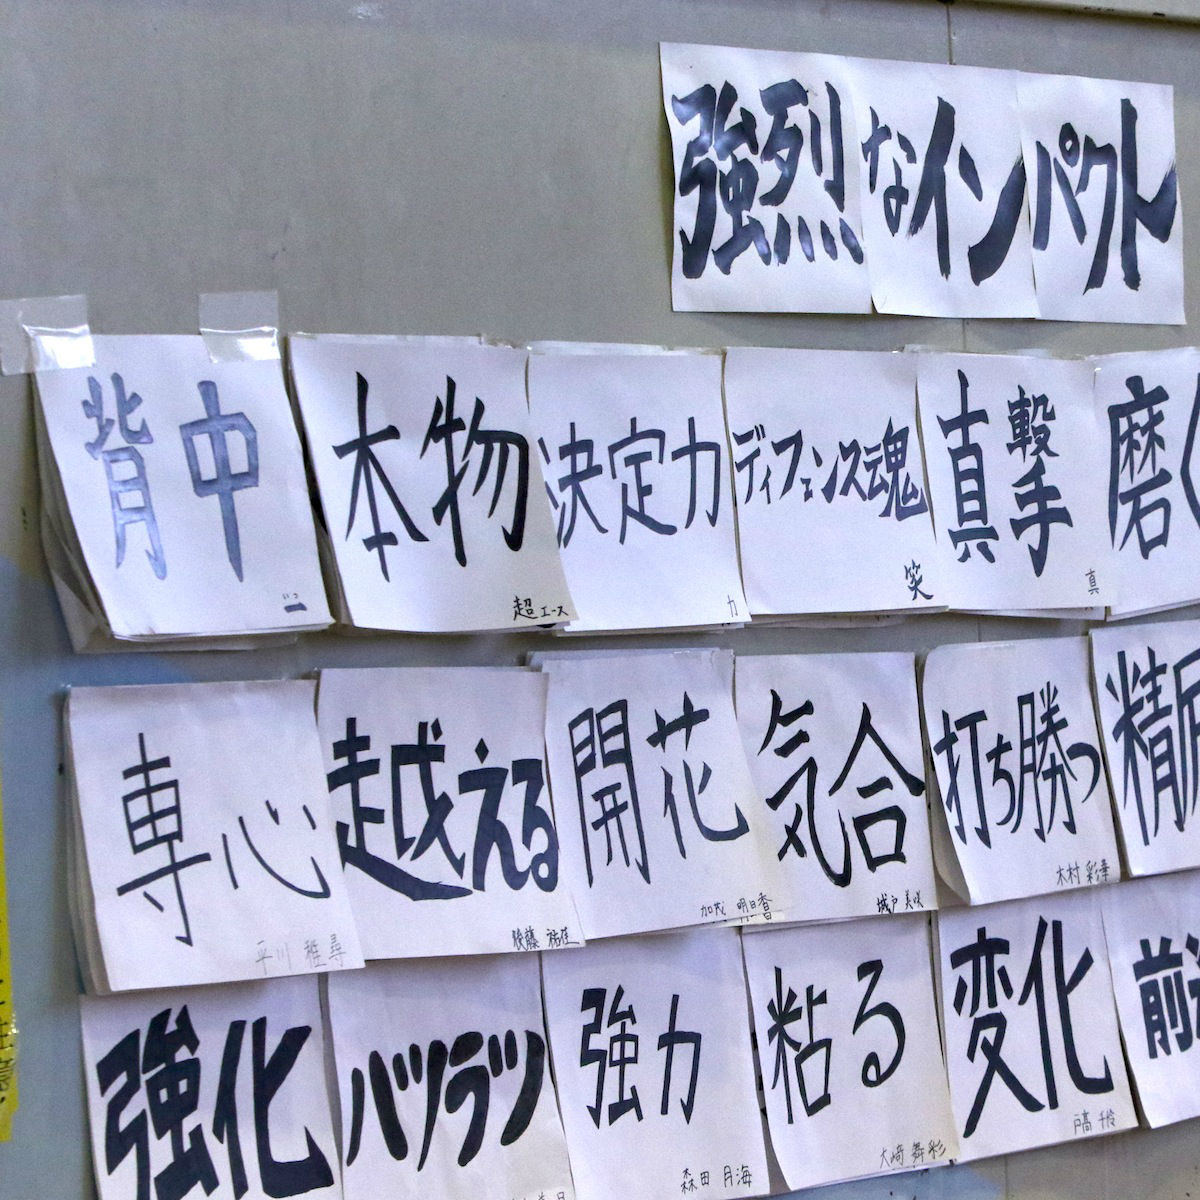 強烈なインパクト
背中
いっ
一
本物
超エース
決定力
力
ディフェンス魂
笑
真撃手
真
磨
専心
平川 雅尋
越える
後藤 祐佳
開花
加茂 明日香
気合
城戸 美咲
打ち勝つ
木村 彩華
精
強化
バツラツ
強力
森田 月海
粘る
大﨑 舞彩
変化
戸高 千怜
前